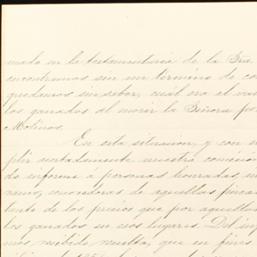 nado en la testamentaria de la Sra
encontramos sin un término de co
quedamos sin saber, cuál era el va
los ganados al morir la Señora
Molinos.
En esta situacion, y con
plir acertadamente nuestro
do informe á personas honradas,
conocedoras de aquellas fincas
tanto de los precios que por aquellos
los ganados en esos lugares. Del in
mos recibido resulta, que en fines